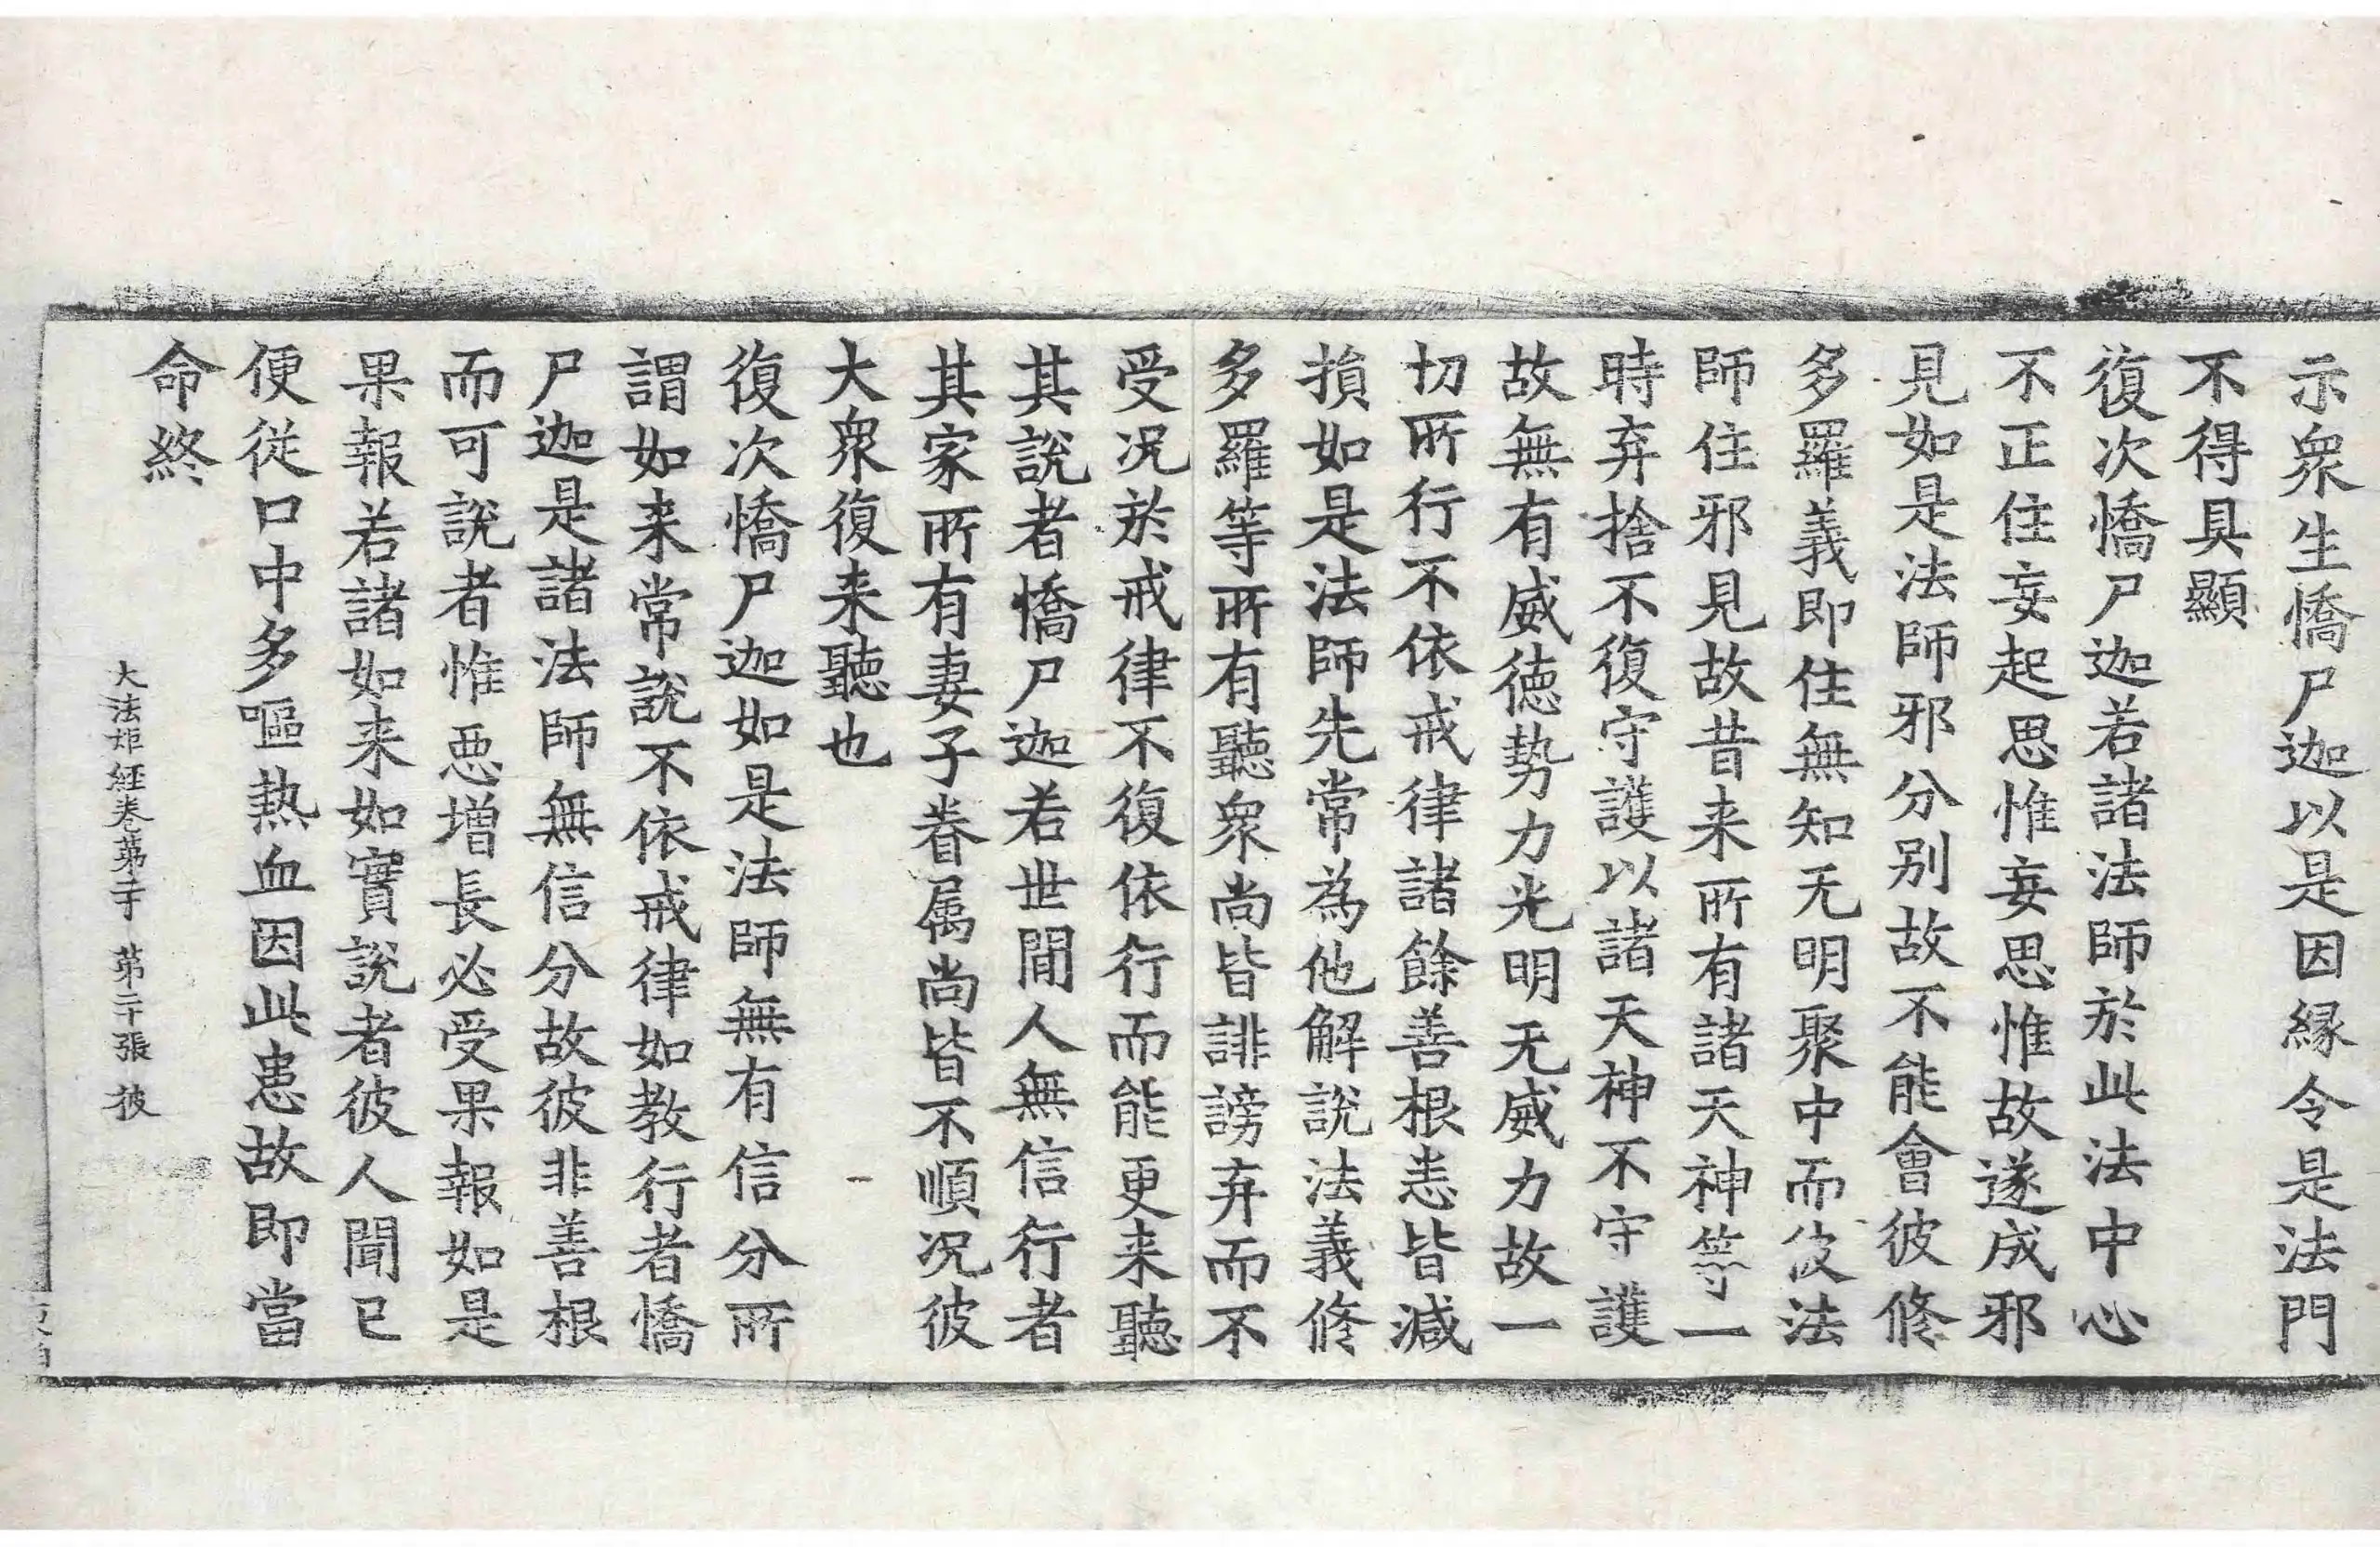 示衆生憍尸迦以是因縁令是法門
不得具顯
復次憍尸迦若諸法師於此法中心
不正住妄起思惟妄思惟故遂成邪
見如是法師邪分别故不能會彼修
多羅義即住無知无明聚中而彼法
師住邪見故昔来所有諸天神等一
時弃捨不復守護以諸天神不守護
故無有威德勢力光明无威力故一
切所行不依戒律諸餘善根恚皆減
損如是法師先常為他解說法義修
多羅等所有聽衆尚皆誹謗弃而不
受况於戒律不復依行而能更来聽
其說者憍尸迦若世間人無信行者
其家所有妻子眷属尚皆不順况彼
大衆復来聽也
復次憍尸迦如是法師無有信分所
謂如来常說不依戒律如教行者憍
尸迦是諸法師無信分故彼非善根
而可說者惟惡增長必受果報如是
果報若諸如来如實說者彼人聞已
便從口中多嘔熱血因此患故即當
命終
大法炬経卷第二十 第二十張 彼